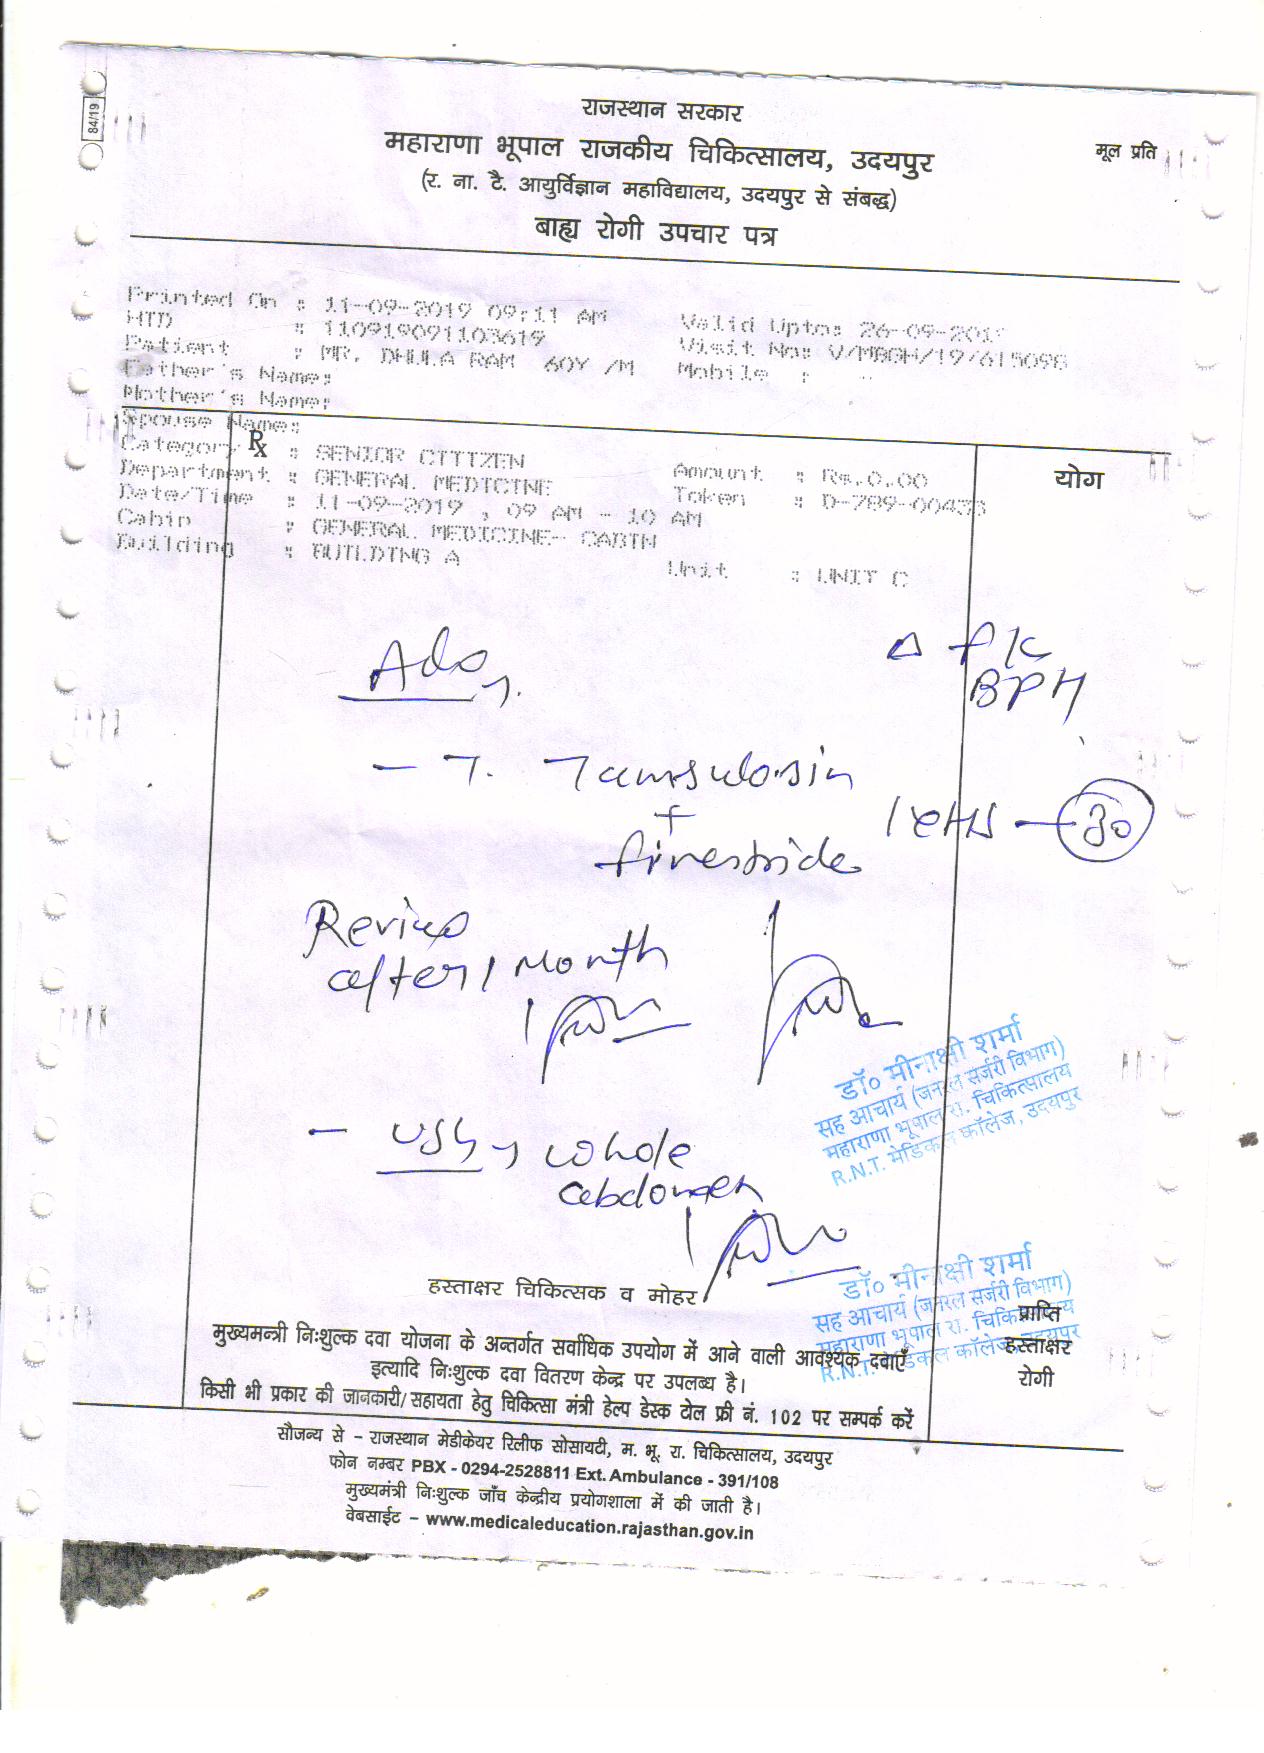 84/19
राजस्थान सरकार
महाराणा भूपाल राजकीय चिकित्सालय, उदयपुर
मूल प्रति
(र. ना. टै. आयुर्विज्ञान महाविद्यालय, उदयपुर से संबद्ध)
बाह्य रोगी उपचार पत्र
Printed On : 11-09-2019 09:11 AM Valid Upto: 26-09-2019
HID : 110919091103619 Visit No: V/MBGH/19/615098
Patient : MR. DHULA RAM 60Y /M Mobile :
Father's Name:
Mother's Name:
Spouse Name:
Rx
Category : SENIOR CITIZEN Amount : Rs.0.00
योग
Department : GENERAL MEDICINE Token : D-789-00433
Date/Time : 11-09-2019 , 09 AM - 10 AM
Cabin : GENERAL MEDICINE- CABIN
Building : BUILDING A Unit : UNIT C
Δ f/c
BPH
Adv
- T. Tamsulosin
+
finestride 1 HS - 30
Review
after 1 Month
डॉ० मीनाक्षी शर्मा
सह आचार्य (जनरल सर्जरी विभाग)
महाराणा भूपाल रा. चिकित्सालय
R.N.T. मेडिकल कॉलेज, उदयपुर
- USG whole
abdomen
हस्ताक्षर चिकित्सक व मोहर
डॉ० मीनाक्षी शर्मा
सह आचार्य (जनरल सर्जरी विभाग)
महाराणा भूपाल रा. चिकित्सालय
R.N.T. मेडिकल कॉलेज, उदयपुर
प्राप्ति
हस्ताक्षर
रोगी
मुख्यमन्त्री निःशुल्क दवा योजना के अन्तर्गत सर्वाधिक उपयोग में आने वाली आवश्यक दवाएँ
इत्यादि निःशुल्क दवा वितरण केन्द्र पर उपलब्ध है।
किसी भी प्रकार की जानकारी/सहायता हेतु चिकित्सा मंत्री हेल्प डेस्क टोल फ्री नं. 102 पर सम्पर्क करें
सौजन्य से – राजस्थान मेडीकेयर रिलीफ सोसायटी, म. भू. रा. चिकित्सालय, उदयपुर
फोन नम्बर PBX - 0294-2528811 Ext. Ambulance - 391/108
मुख्यमंत्री निःशुल्क जाँच केन्द्रीय प्रयोगशाला में की जाती है।
वेबसाईट – www.medicaleducation.rajasthan.gov.in